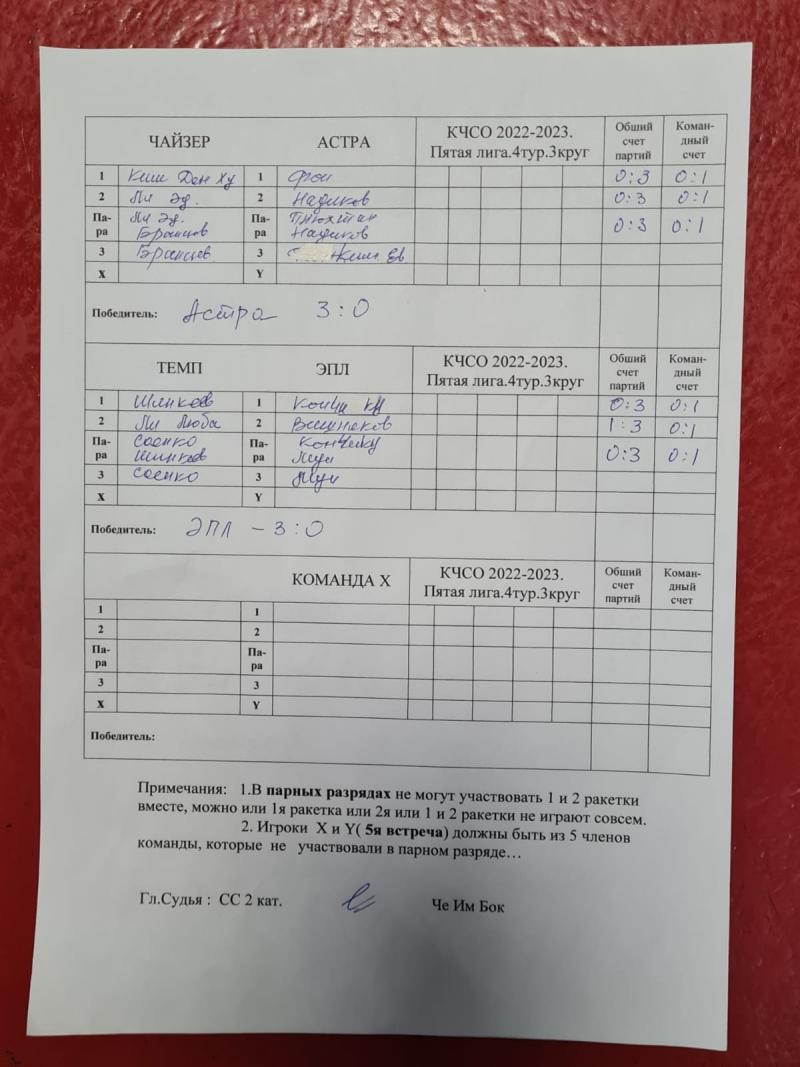 ЧАЙЗЕР АСТРА КЧСО 2022-2023. Пятая лига.4тур.3круг Обший счет партий Коман-дный счет
1 Ким Ден Ху 1 Фои 0:3 0:1
2 Ли Эд. 2 Надиков 0:3 0:1
Па-ра Ли Эд. Бранцов Па-ра Надиков 0:3 0:1
3 Бранцев 3 Ким Ев
X Y
Победитель: Астра 3:0
ТЕМП ЭПЛ КЧСО 2022-2023. Пятая лига.4тур.3круг Обший счет партий Коман-дный счет
1 Шинков 1 0:3 0:1
2 Ли Люба 2 Вишняков 1:3 0:1
Па-ра Соенко Шинков Па-ра 0:3 0:1
3 Соенко 3
X Y
Победитель: ЭПЛ – 3:0
КОМАНДА X КЧСО 2022-2023. Пятая лига.4тур.3круг Обший счет партий Коман-дный счет
1 1
2 2
Па-ра Па-ра
3 3
X Y
Победитель:
Примечания: 1.В парных разрядах не могут участвовать 1 и 2 ракетки
вместе, можно или 1я ракетка или 2я или 1 и 2 ракетки не играют совсем.
2. Игроки X и Y( 5я встреча) должны быть из 5 членов
команды, которые не участвовали в парном разряде…
Гл.Судья : СС 2 кат. Че Им Бок